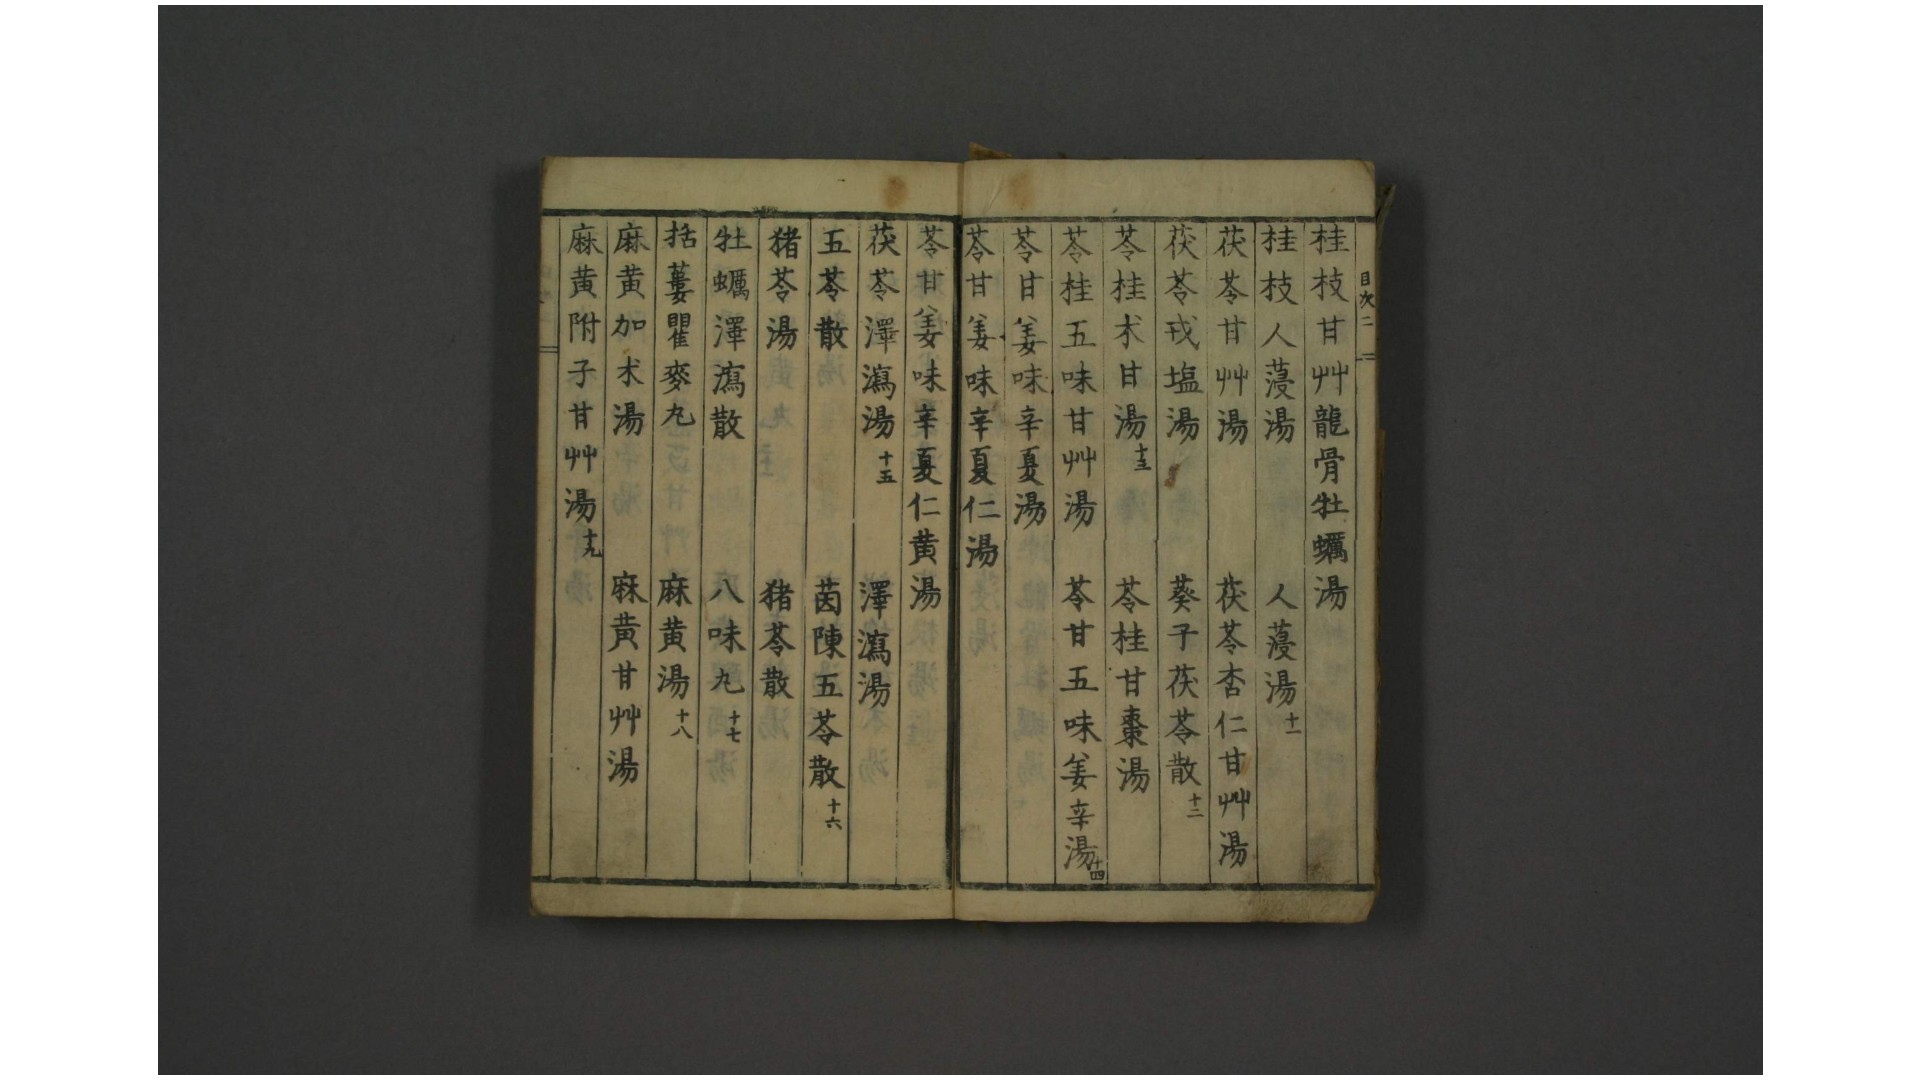 目次 二
桂枝甘艸龍骨牡蠣湯
桂枝人薓湯 人薓湯 十一
茯苓甘艸湯 茯苓杏仁甘艸湯
茯苓戎塩湯 葵子茯苓散 十二
苓桂朮甘湯 十三 苓桂甘棗湯
苓桂五味甘艸湯 苓甘五味姜辛湯 十四
苓甘姜味辛夏湯
苓甘姜味辛夏仁湯
苓甘姜味辛夏仁黄湯
茯苓澤瀉湯 十五 澤瀉湯
五苓散 茵陳五苓散 十六
猪苓湯 猪苓散
牡蠣澤瀉散 八味丸 十七
括蔞瞿麥丸 麻黄湯 十八
麻黄加朮湯 麻黄甘艸湯
麻黄附子甘艸湯 十九